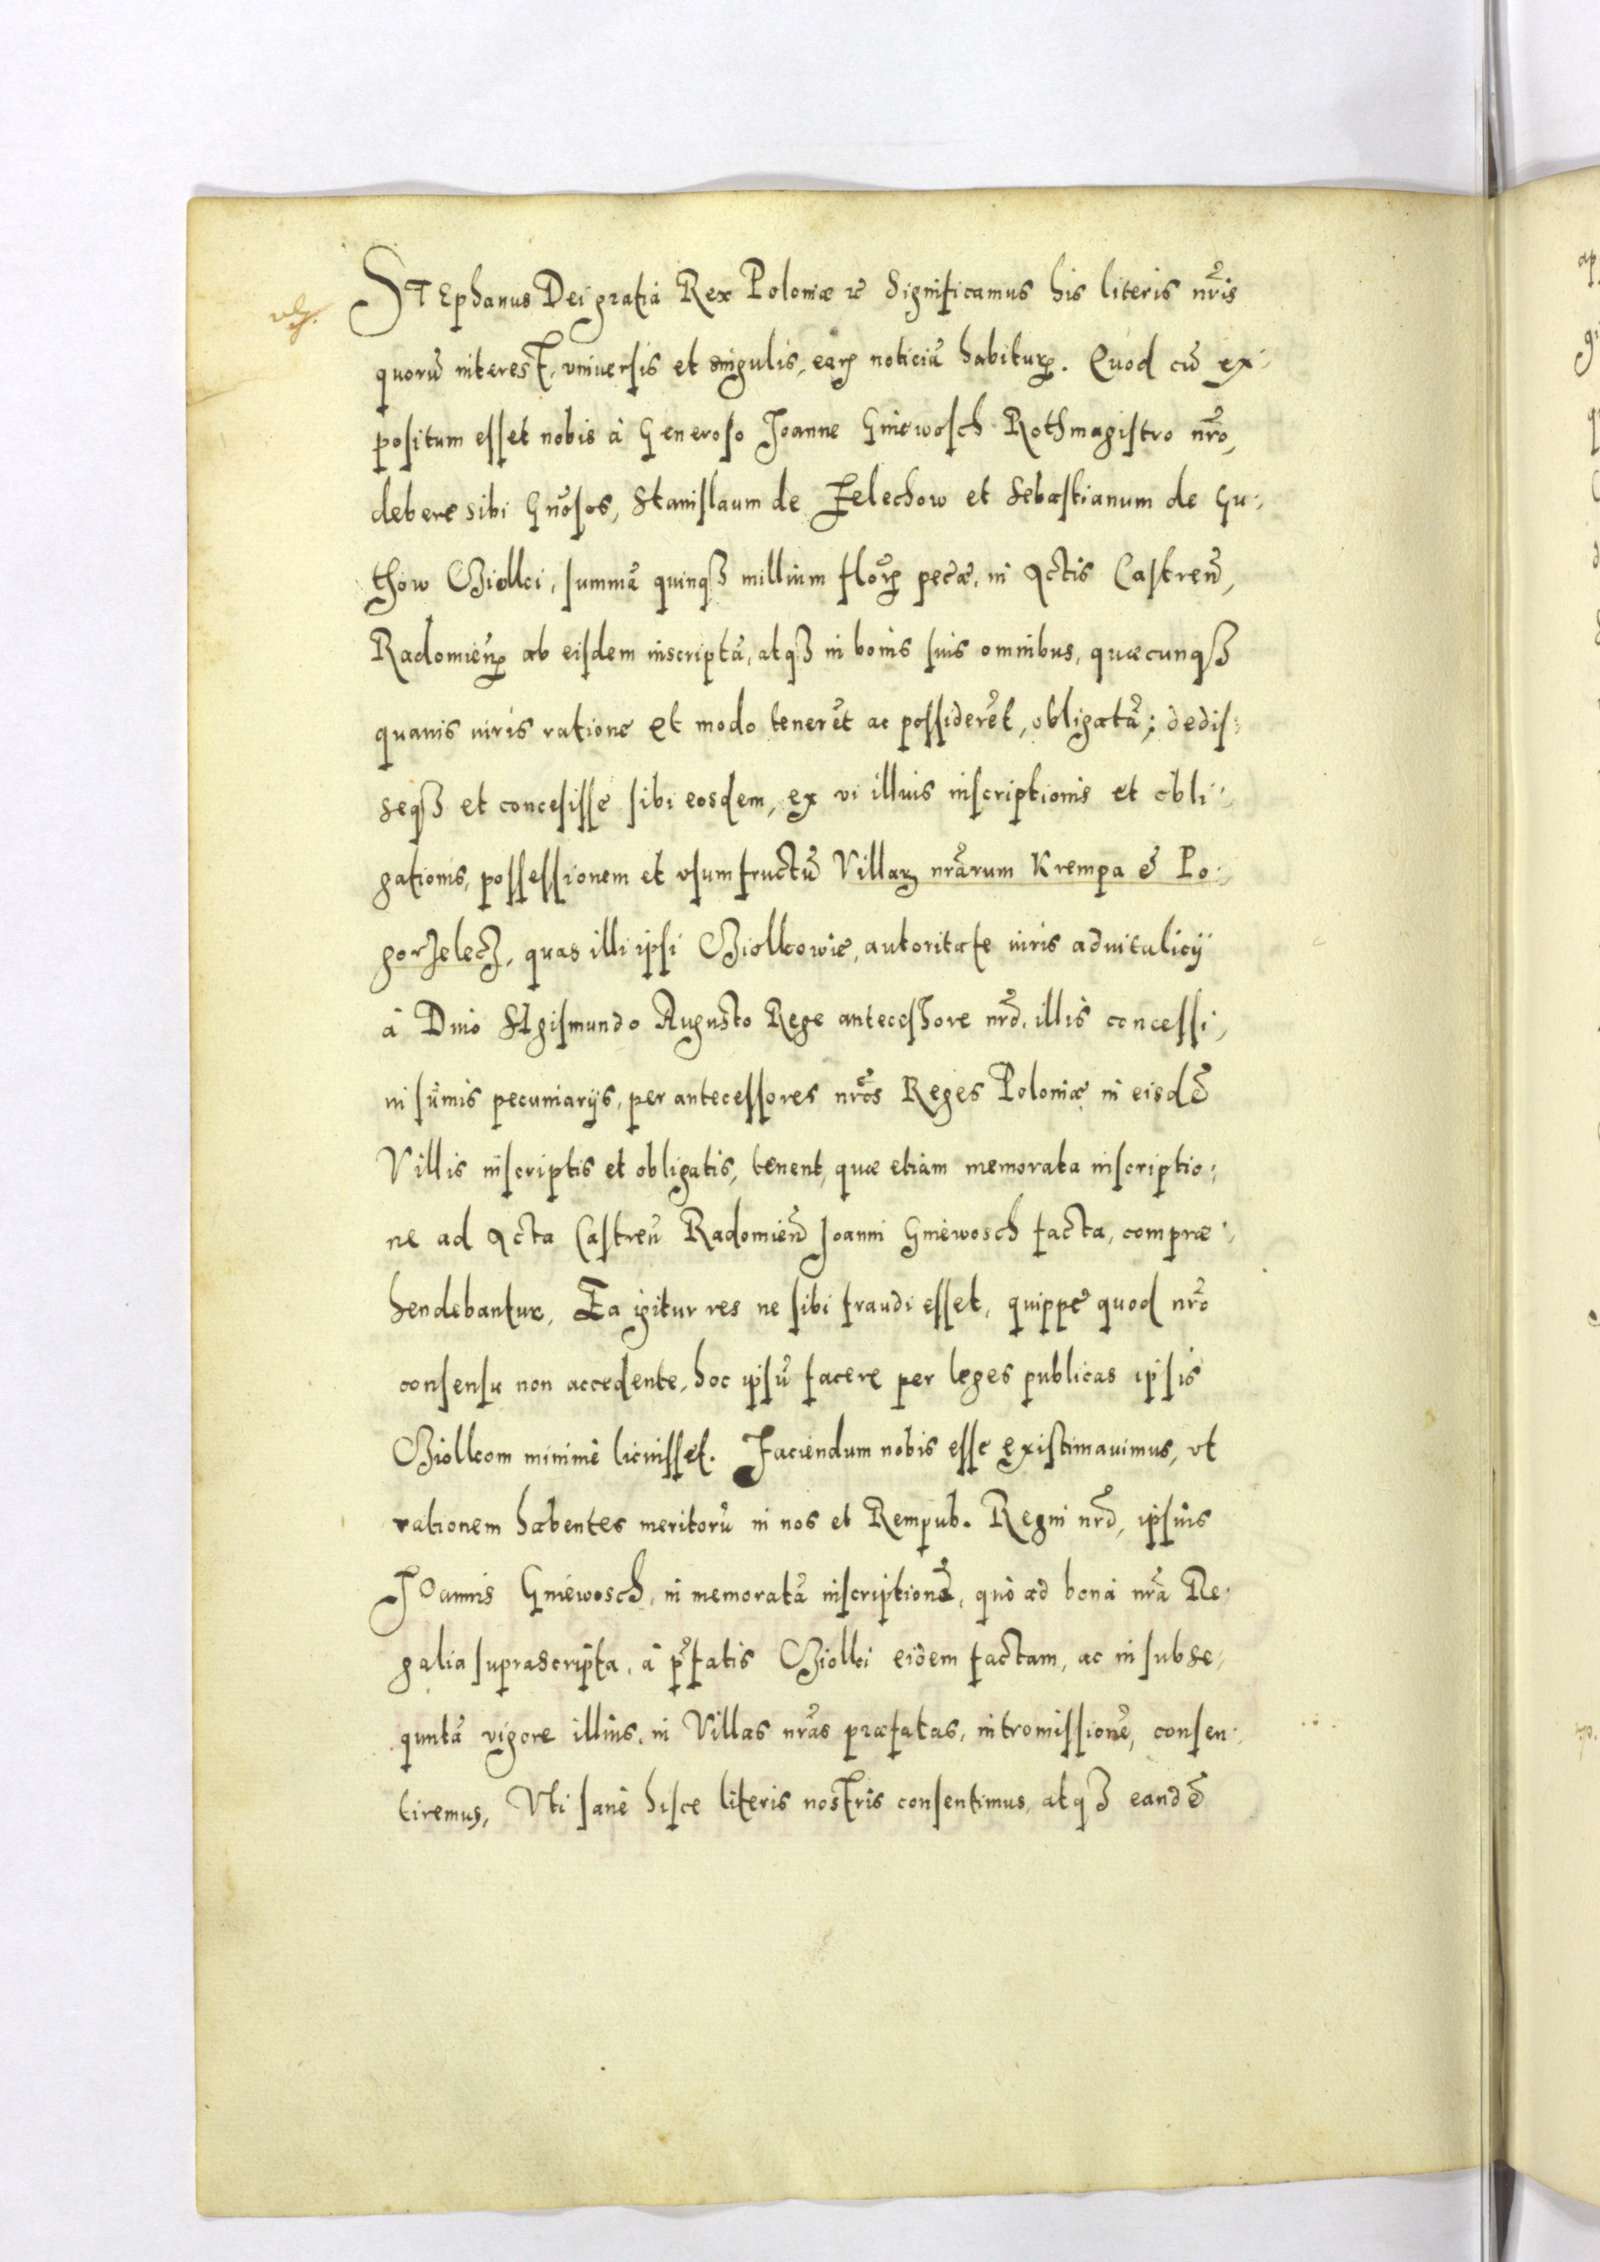 STEphanus Dei gratia Rex Poloniæ &c Significamus his literis nr̃is
quorũ interest, vniuersis et singulis, earꝝ noticiã habiturꝝ. Quod cũ ex-
positum esset nobis à Generoso Joanne Gniewosch Rothmagistro nr̃o,
debere sibi Gñosos, Stanislaum de Zelechow et Sebastianum de Gu-
thow Ciolki, summã quinqȝ millium flor̃ꝝ pecæ, in Actis Castreñ,
Radomieñ ab eisdem inscriptã, atqȝ in bonis suis omnibus, quæcunqȝ
quauis iuris ratione et modo tenerẽt ac possiderẽt, obligatã; dedis-
seqȝ et concesisse sibi eosdem, ex vi illius inscriptionis et obli-
gationis, possessionem et vsumfructũ Villarꝝ nr̃arum Krempa et Po-
gorzelecz, quas illi ipsi Ciolkowie, autoritate iuris aduitalicij
à Diuo Sigismundo Augusto Rege antecessore nr̃o, illis concessi,
in sũmis pecuniarijs, per antecessores nr̃os Reges Poloniæ in eisdẽ
Villis inscriptis et obligatis, tenent, quæ etiam memorata inscriptio-
ne ad Acta Castreñ Radomieñ Joanni Gniewosch facta, compræ-
hendebantur, Ea igitur res ne sibi fraudi esset, quippe quod nr̃o
consensu non accedente, hoc ipsũ facere per leges publicas ipsis
Ciolkom minimè licuisset. Faciendum nobis esse existimauimus, vt
rationem habentes meritorũ in nos et Rempub. Regni nr̃i, ipsius
Joannis Gniewosch, in memoratã inscriptionẽ, quò ad bona nr̃a Re-
galia suprascripta, à p̃fatis Ciolki eidem factam, ac in subse-
quutã vigore illius, in Villas nr̃as præfatas, intromissionẽ, consen-
tiremus, Vti sanè hisce literis nostris consentimus, atqȝ eandẽ